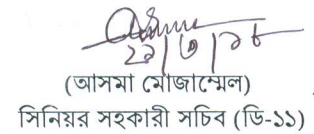 ২৯/৩/১৮
(আসমা মোজাম্মেল)
সিনিয়র সহকারী সচিব (ডি-১১)